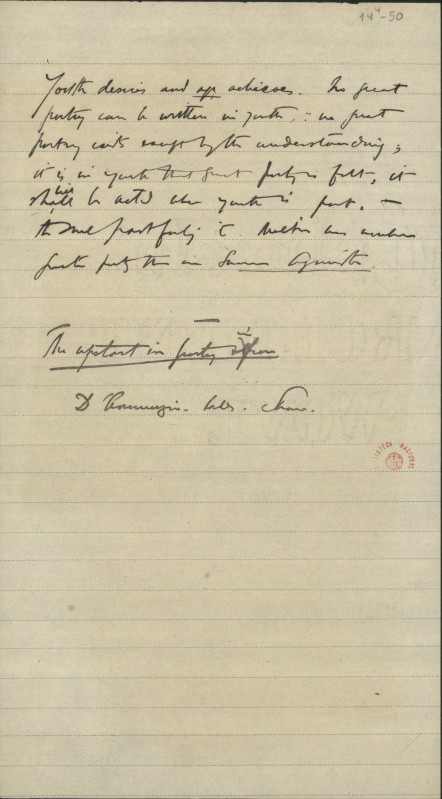 14⁴-50
Youth desires and age achieves. No great
poetry can be written in youth, ∵ no great
poetry exists except by the understanding;
it is in youth that great poetry is felt, it
shall will be acted when youth is past. —
the soul
greater poetry than in Samson Agonistes.
The upstart in poetry is from
D'Annunzio. Shaw.
BIBLIOTECA NACIONAL